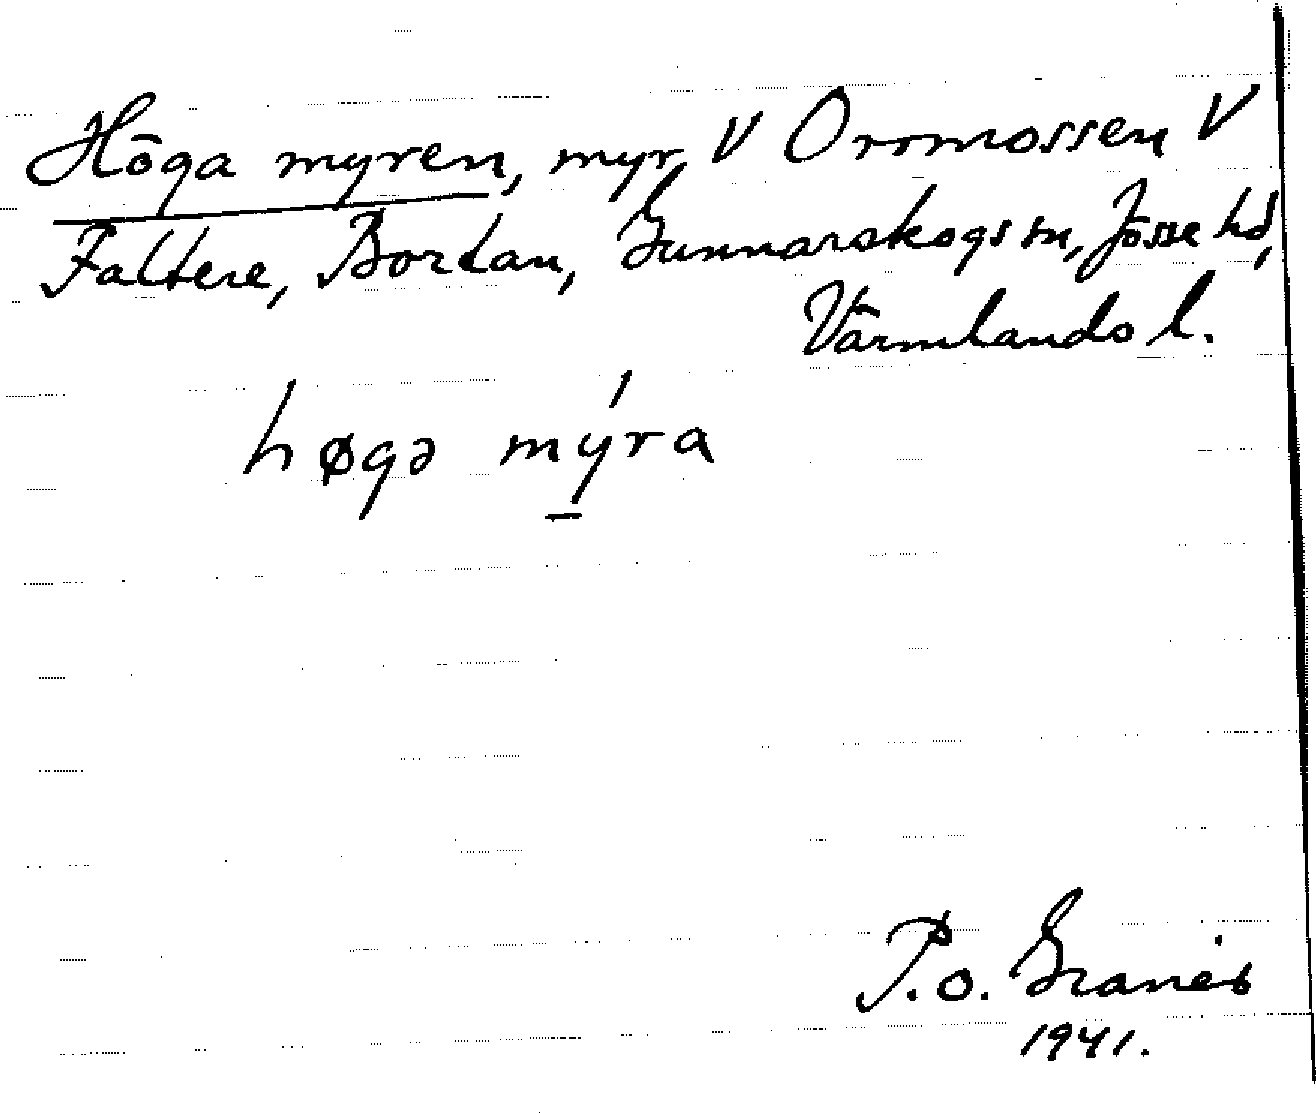 Höga myren, myr V Orrmossen V
Faltere, Bortan, Gunnarskogs sn, Jösse hd,
Värmlands l.
høgə mýra
P.o. Granéb
1941.